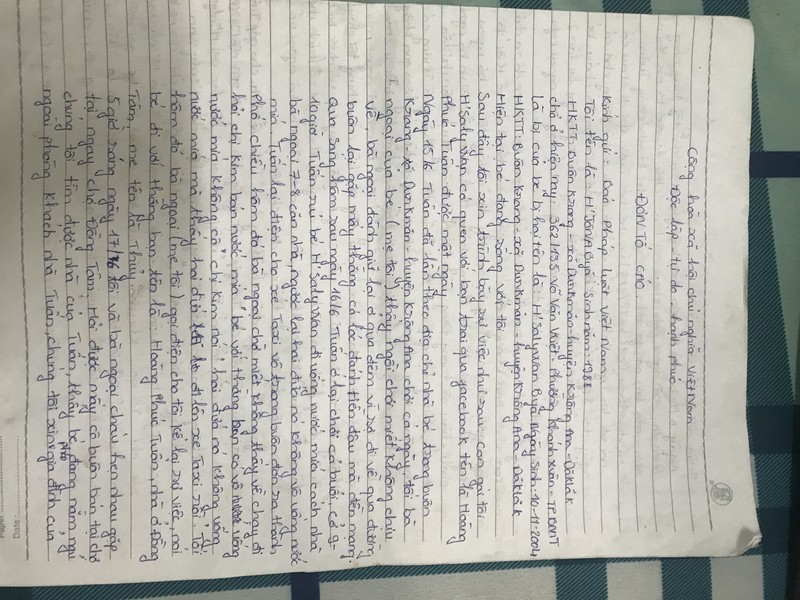 Cộng hòa xã hội chủ nghĩa Việt Nam
Độc lập - tự do - hạnh phúc
ĐƠN TỐ CÁO
Kính gửi: Báo Pháp luật Việt Nam
Tôi tên là: H'JONA Byă. Sinh năm 1988
HKTT: Buôn Krang - xã Durkmăn - huyện Krông Ana - Đăk Lăk
chỗ ở hiện nay: 362/135 Võ Văn Kiệt - Phường Khánh Xuân - TP.BMT
Là bị của bé bị hại tên là: H'Sally Wan Byă. Ngày sinh: 10-11-2004
HKTT: Buôn Krang - xã Durkmăn - huyện Krông Ana - Đăk Lăk
Hiện tại bé đang sống với tôi.
Sau đây tôi xin trình bày sự việc như sau: Con gái tôi
H'Sally Wan có quen với bạn trai qua facebook tên là Hoàng
Phúc Tuân được một ngày.
Ngày 15/6 Tuân đã lần theo địa chỉ nhà bé trong buôn
Krang - xã Durkmăn - huyện Krông Ana chơi cả ngày, tối bà
ngoại của bé (mẹ tôi) thấy ngồi chơi miết không chịu
về, bà ngoại đành giữ lại ở qua đêm vì sợ đi về qua đường
buôn lại gặp mấy thằng cô lốc đánh tiền đâu mà đền mạng.
Qua sáng hôm sau ngày 16/6 Tuân ở lại chơi cả buổi, cỡ 9-
10 giờ Tuân rủ bé H'Sally Wan đi uống nước mía cách nhà
bà ngoại 7-8 căn nhà, ngược lại hai đứa nó không vô uống nước
mía, Tuân lại điện cho xe Taxi vô trong buôn đón ra thành
phố chiều hôm đó bà ngoại chờ miết không thấy về chạy đi
hỏi chị Kim bán nước mía, bé với thằng bạn có vô uống
nước mía không cô, chị Kim nói, hai đứa nó không uống
nước mía mà thấy hai đứa đi lên xe Taxi rồi. Tối
hôm đó bà ngoại (mẹ tôi) gọi điện cho tôi kể lại sự việc, nói
bé đi với thằng bạn tên là: Hoàng Phúc Tuân, nhà ở Đồng
Tâm, mẹ tên Hà Thủy..
5 giờ sáng ngày 17/6 tôi và bà ngoại cháu hẹn nhau gặp
tại ngay chợ Đồng Tâm. Hỏi được mấy cô buôn bán tại chợ
chúng tôi tìm được nhà của Tuân, thấy bé đang nằm ngủ
ngoài phòng khách nhà Tuân, chúng tôi xin phép gia đình của